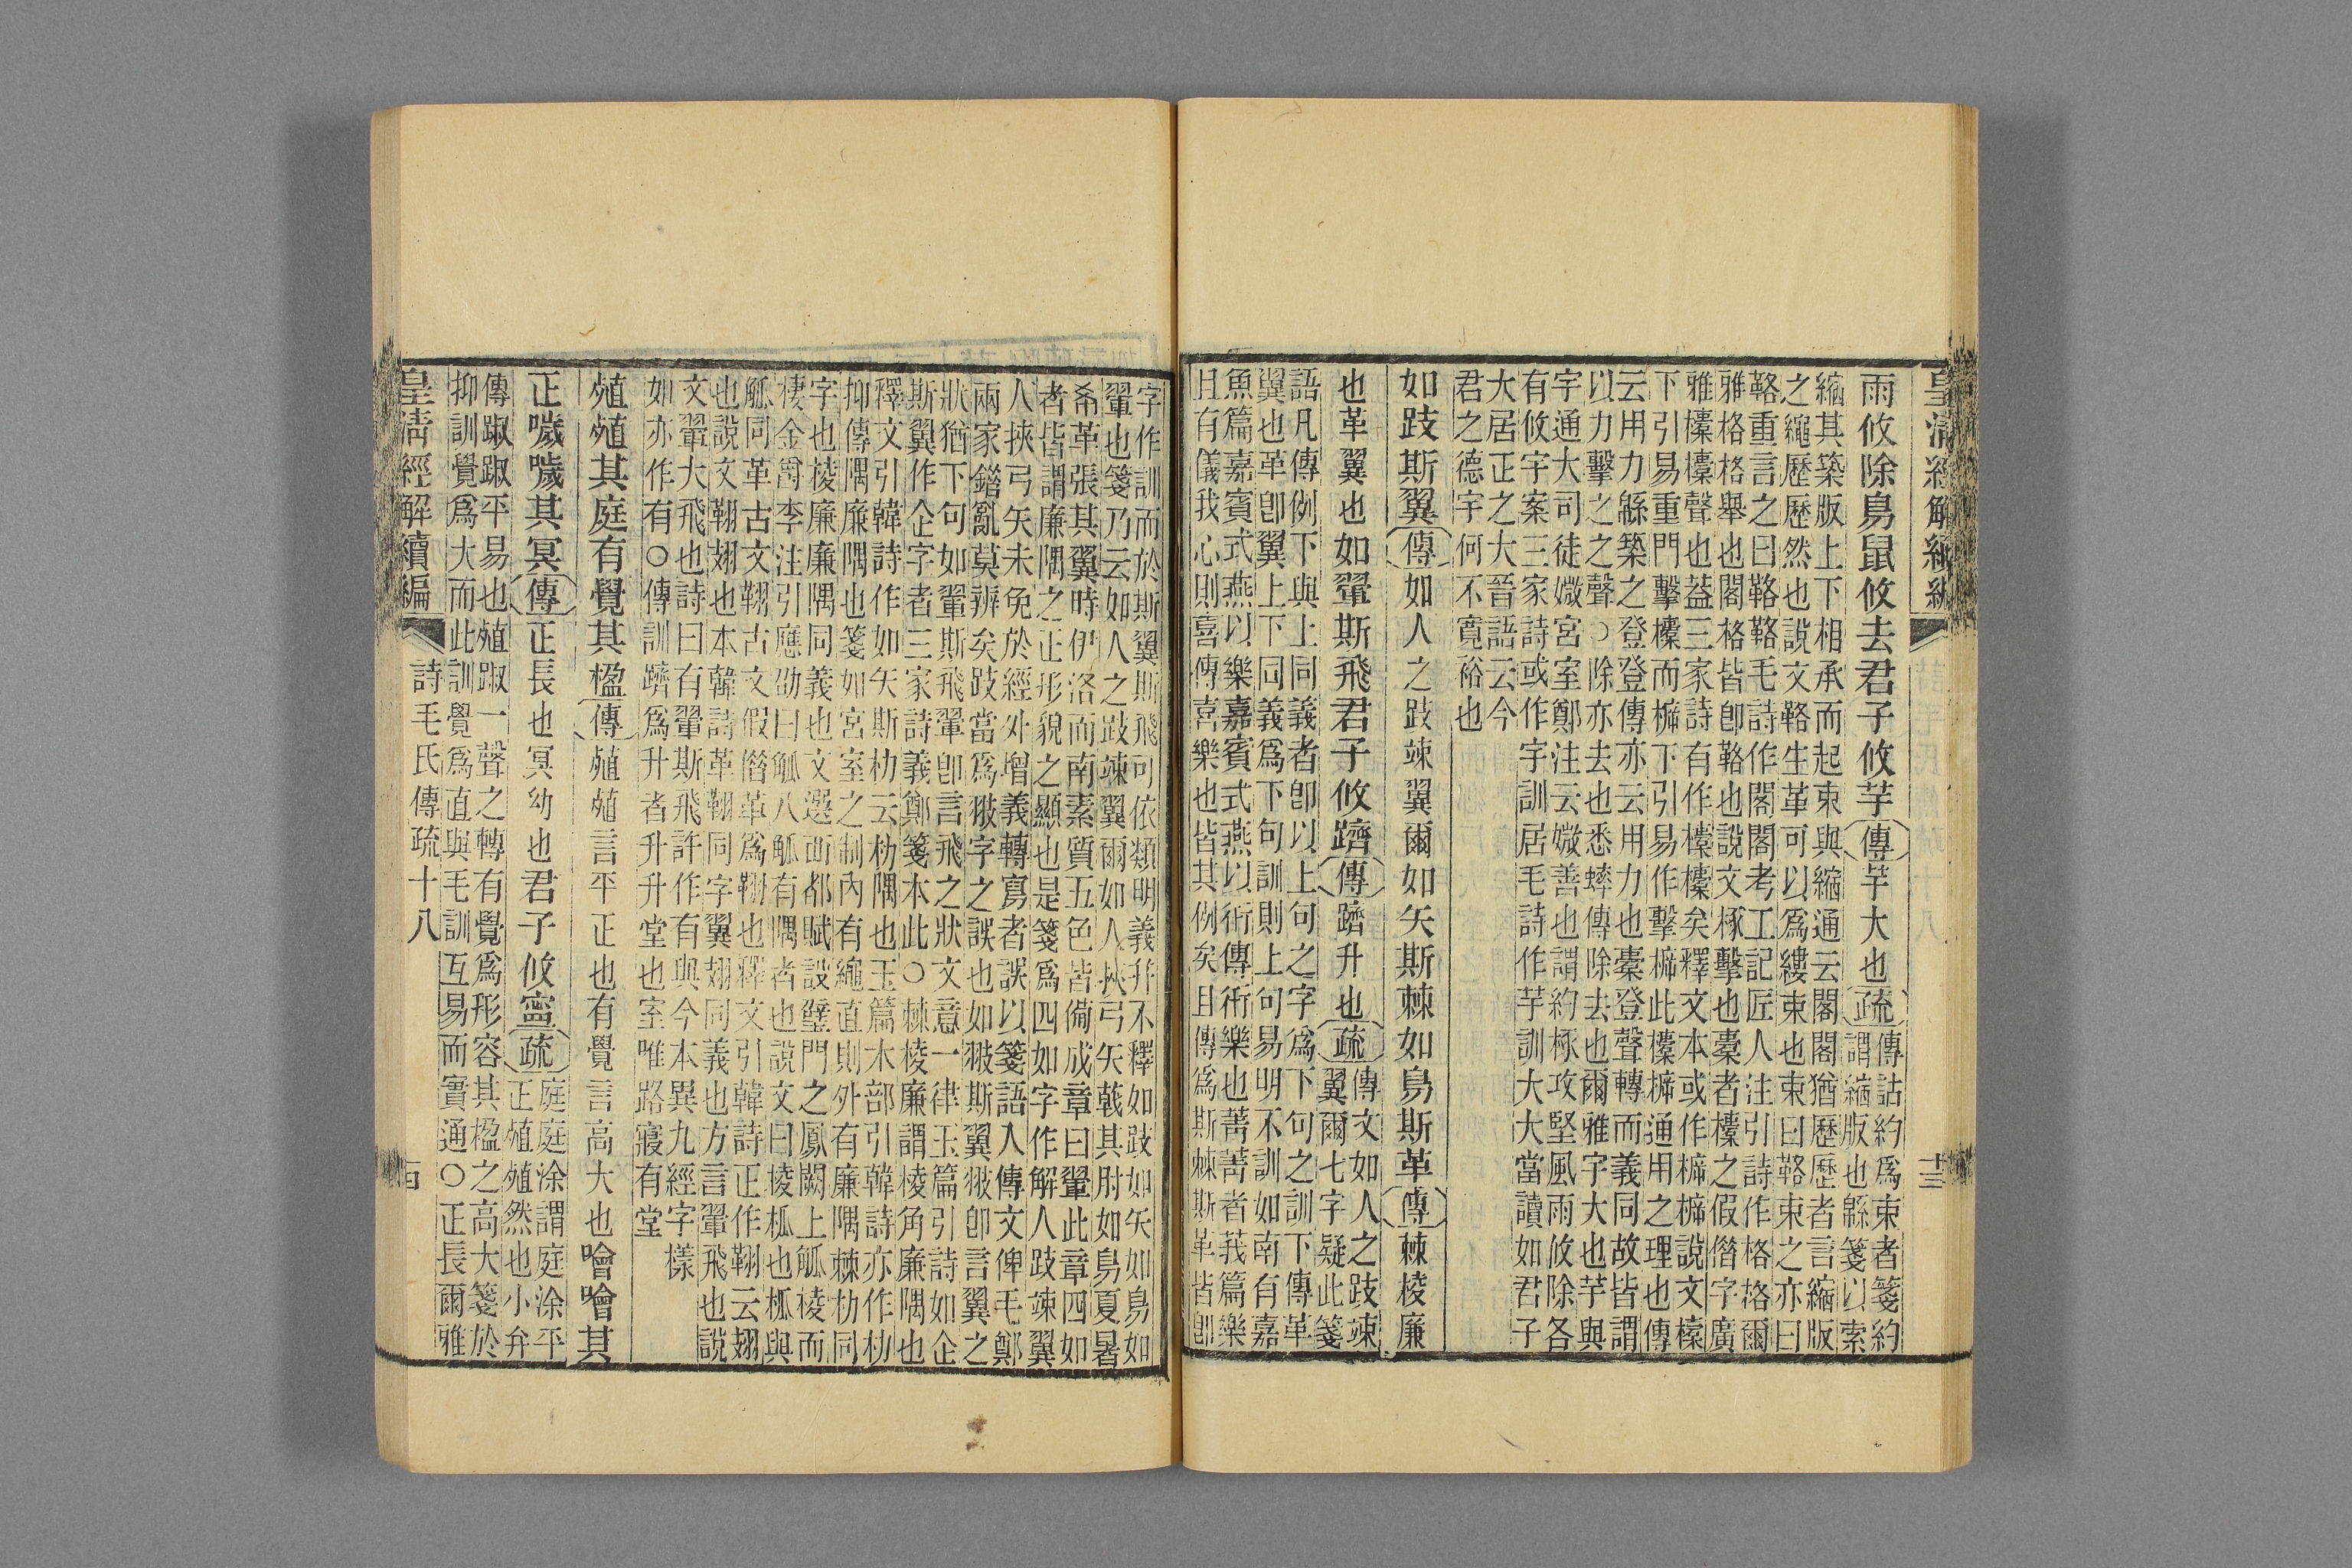 皇清經解續編
十三
雨攸除鳥鼠攸去君子攸芋傳芋大也疏傳詁約爲束者箋約
謂縮版也緜箋以索
縮其築版上下相承而起束與縮通云閣閣猶歷歷者言縮版
之繩歷歷然也說文鞈生革可以爲縷束也束曰鞈束之亦曰
鞈重言之曰鞈鞈毛詩作閣閣考工記匠人注引詩作格格爾
雅格格舉也閣格皆卽鞈也說文椓擊也橐者㯻之假借字廣
雅㯻㯻聲也葢三家詩有作㯻㯻矣釋文本或作㭼㭼說文㯻
下引易重門擊㯻而㭼下引易作擊㭼此㯻㭼通用之理也傳
云用力緜築之登登傳亦云用力也橐登聲轉而義同故皆謂
以力擊之之聲○除亦去也悉蟀傳除去也爾雅宇大也芋與
宇通大司徒媺宮室鄭注云媺善也謂約椓攻堅風雨攸除各
有攸宇案三家詩或作宇訓居毛詩作芋訓大大當讀如君子
大居正之大晉語云今
君之德宇何不寬裕也
如跂斯翼傳如人之跂竦翼爾如矢斯棘如鳥斯革傳棘棱廉
也革翼也如翬斯飛君子攸躋傳躋升也疏傳文如人之跂竦
翼爾七字疑此箋
語凡傳例下與上同義者卽以上句之字爲下句之訓下傳革
翼也革卽翼上下同義爲下句訓則上句易明不訓如南有嘉
魚篇嘉賓式燕以樂嘉賓式燕以衎傳衎樂也菁菁者莪篇樂
且有儀我心則喜傳喜樂也皆其例矣且傳爲斯棘斯革皆卽
字作訓而於斯翼斯飛可依類明義并不釋如跂如矢如鳥如
翬也箋乃云如人之跂竦翼爾如人挾弓矢戟其肘如鳥夏暑
希革張其翼時伊洛而南素質五色皆備成章曰翬此章四如
者皆謂廉隅之正形貌之顯也是箋爲四如字作解人跂竦翼
人挾弓矢未免於經外增義轉寫者誤以箋語入傳文俾毛鄭
兩家鐟亂莫辨矣跂當爲翄字之誤也如翄斯翼翄卽言翼之
狀猶下句如翬斯飛翬卽言飛之狀文意一律玉篇引詩如企
斯翼作企字者三家詩義鄭箋本此○棘棱廉謂棱角廉隅也
釋文引韓詩作如矢斯朸云朸隅也玉篇木部引韓詩亦作朸
抑傳隅廉隅也箋如宮室之制內有繩直則外有廉隅棘朸同
字也棱廉廉隅同義也文選西都賦設璧門之鳳闕上觚棱而
棲金爵李注引應劭曰觚八觚有隅者也說文曰棱柧也柧與
觚同革古文䩖古文假借革爲䩖也釋文引韓詩正作䩖云翅
也說文䩖翅也本韓詩革䩖同字翼翅同義也方言翬飛也說
文翬大飛也詩曰有翬斯飛許作有與今本異九經字樣
如亦作有○傳訓躋爲升者升升堂也室唯路寢有堂
殖殖其庭有覺其楹傳殖殖言平正也有覺言高大也噲噲其
正噦噦其冥傳正長也冥幼也君子攸寧疏庭庭涂謂庭涂平
正殖殖然也小弁
傳踧踧平易也殖踧一聲之轉有覺爲形容其楹之高大箋於
抑訓覺爲大而此訓覺爲直與毛訓互易而實通○正長爾雅
皇清經解續編
詩毛氏傳疏十八
十四